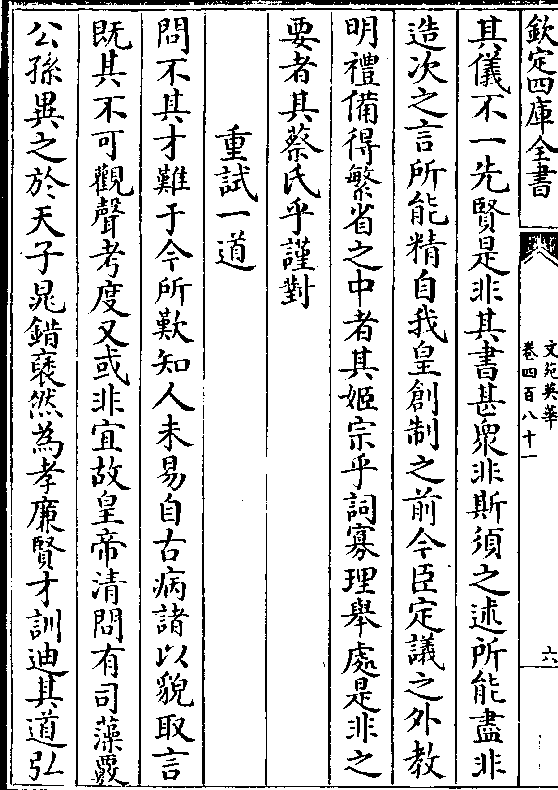 欽定四庫全書
文苑英華
卷四百八十一
六
其儀不一先賢是非其書甚衆非斯須之述所能盡非
造次之言所能精自我皇創制之前今臣定議之外教
明禮備得繁省之中者其姬宗乎詞寡理舉處是非之
要者其蔡氏乎謹對
重試一道
問不其才難于今所歎知人未易自古病諸以貌取言
既其不可觀聲考度又或非宜故皇帝清問有司藻覈
公孫異之於天子晁錯褎然為孝廉賢才訓迪其道弘